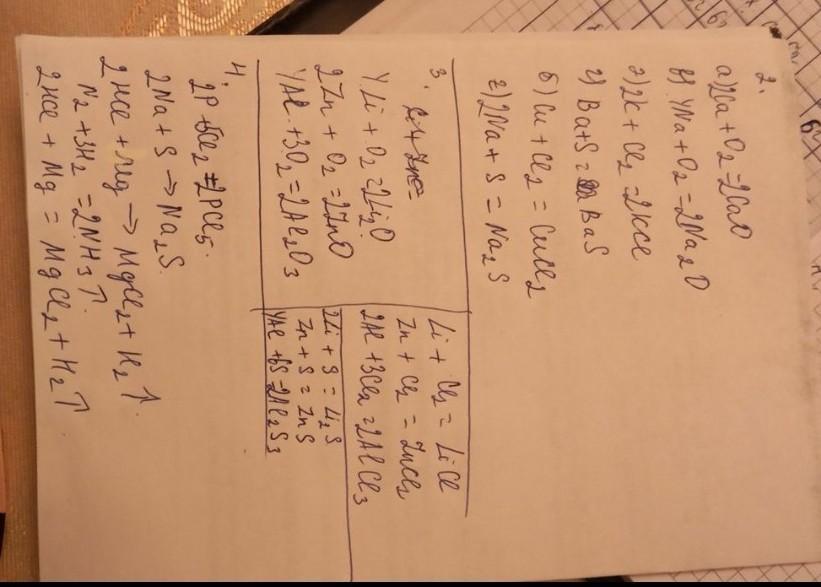 2.
а) 2Ca + O2 = 2CaO
в) 4Na + O2 = 2Na2O
д) 2K + Cl2 = 2KCl
Ba + S = BaS
б) Cu + Cl2 = CuCl2
г) 2Na + S = Na2S
3.
4Li + O2 = 2Li2O
2Zn + O2 = 2ZnO
4Al + 3O2 = 2Al2O3
Li + Cl2 = LiCl
Zn + Cl2 = ZnCl2
2Al + 3Cl2 = 2AlCl3
2Li + S = Li2S
Zn + S = ZnS
4Al + 6S = 2Al2S3
4.
2P + 5Cl2 = 2PCl5.
2Na + S → Na2S.
2HCl + Mg → MgCl2 + H2↑
N2 + 3H2 = 2NH3↑
2HCl + Mg = MgCl2 + H2↑